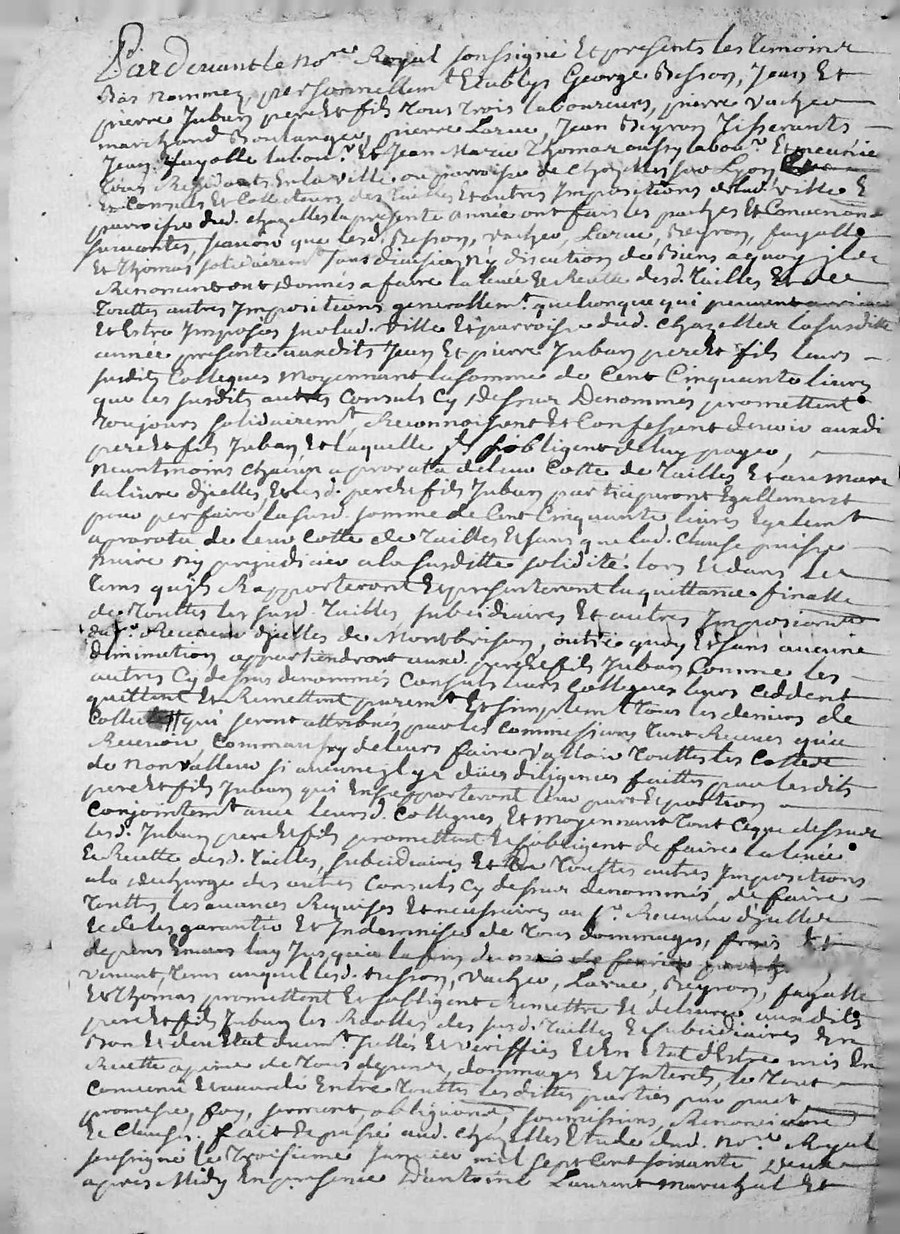 Pardevant le no.re Royal soussigné Et presents les temoins
Bas nommez, personnellem.t Etablys George Besson, Jean Et
pierre Juban pere et fils tous trois laboureurs, pierre vacher
marchand Boulanger, pierre Larue, Jean Beyron Tisserants
Jean fayolle labou.r Et Jean Marie Thomas aussy labou.r Et meunie
tous Residants En la ville ou parroisse de Chazelles sur Lyon
Et Consuls Et Collecteurs des Tailles Et autres Impositions de lad. ville E
parroisse dud. Chazelles la presente année ont fait les pactes Et Conventions
suivantes, scavoir que lesd. Besson, vacher, Larue, Beyron, fayolle
Et Thomas solidairem.t sans division ny discution de Biens a quoy ils
Renoncent ont donnés a faire la levée Et Recette desd. Tailles Et de
touttes autres Impositions generallem.t quelconque qui peuvent arriver
Et Estre Imposés sur lad. ville Et parroisse dud. Chazelles la susditte
année presente auxdits Jean Et pierre Juban pere Et fils leurs
susdits Collegues moyennant la somme de Cent Cinquante livres
que les susdits autres Consuls Cy dessus Denommés promettent
toujours solidairem.t, Reconnoissent Et Confessent devoir auxdi
pere Et fils Juban, Et laquelle ils s'obligent de luy payer,
neantmoins chacun a prorata de leur Cotte de Tailles Et au marc
la livre d'jcelles, Et lesd. pere Et fils Juban participeront Egallement
pour parfaire la susd. somme de Cent Cinquante livres Egalem.t
a prorata de leur Cotte de Tailles Et sans que lad. Clause puisse
nuire ny prejudicier a la susditte solidité. lors Et dans le
tems qu'ils Rapporteront Et presenteront la quittance finalle
de touttes les susd. Tailles, subsidiaires Et autres Impositions
du s.r Receveur d'jcelles de Montbrison, outre quoy Et sans aucune
diminution appartiendront auxd. pere Et fils Juban Comme les
autres Cy dessus denommés Consuls leurs Collegues leurs Ceddent
quittent Et Remettent purem.t Et simplem.t tous les deniers de
Collecte qui seront attribués par les Commissions tant Receues qu'a
Recevoir, Comm aussy de leurs faire valloir touttes les Cottes
de nonvalleur si aucune jl y a dües diligences faittes par lesdits
pere Et fils Juban qui En supporteront leur part Et portion
Conjointem.t avec leursd. Collegues, Et moyennant tout Ce que dessus
lesd. Juban pere Et fils promettent Et s'obligent de faire la levée
Et Recette desd. Tailles, subsidiaires Et de touttes autres Impositions
a la decharge des autres Consuls Cy dessus denommés, de faire
touttes les avances Requises Et necessaires au s.r Receveur d'jcelles
Et de les garantir Et Indemniser de tous dommages, frais Et
depens Envers luy jusqu'a la fin du mois de fevrier
venant, tems auquel lesd. Besson, vacher, Larue, Beyron, fayolle
Et Thomas promettent Et s'obligent Remettre Et delivrer auxdits
pere Et fils Juban les Rolles des susd. Tailles Et subsidiaires En
Bon Et deu Etat duem.t Jullés Et veriffiés Et En Etat d'Estre mis En
Recette a peine de tous depens, dommages Et Interets, le tout
Convenu Et accordé Entre touttes lesdittes parties par pact
promesse, foy, serment, obligations, soumissions, Renonciations
Et Clauses. fait Et passé aud. Chazelles Etude dud. no.re Royal
soussigné le troisieme janvier mil sept cent soixante deux
apres Midy En presence d'antoine Laurent marechal Et